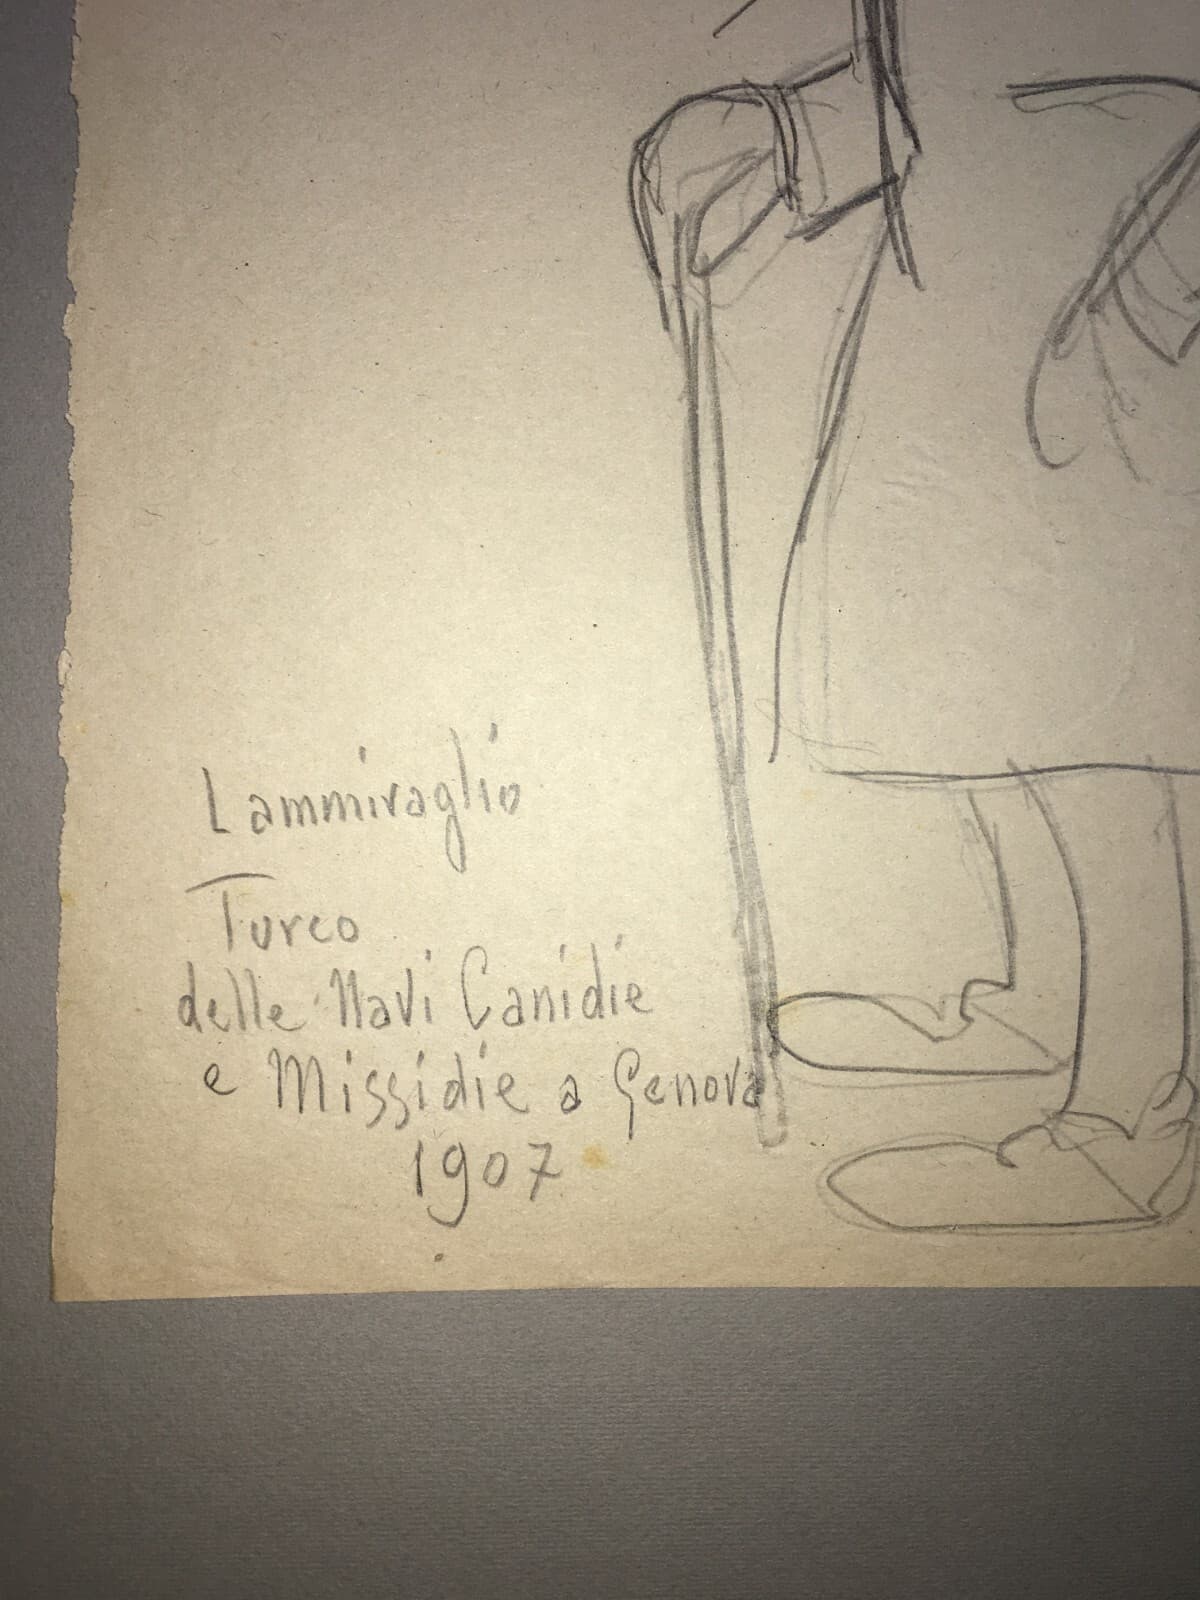 Lammiraglio
Turco
delle Navi Canidie
e Missidie a Genova
1907